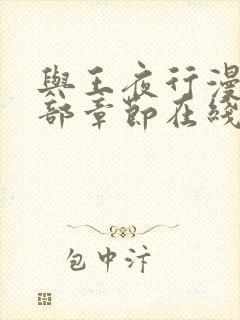 與王夜行漫
部章節在綫
包中汴